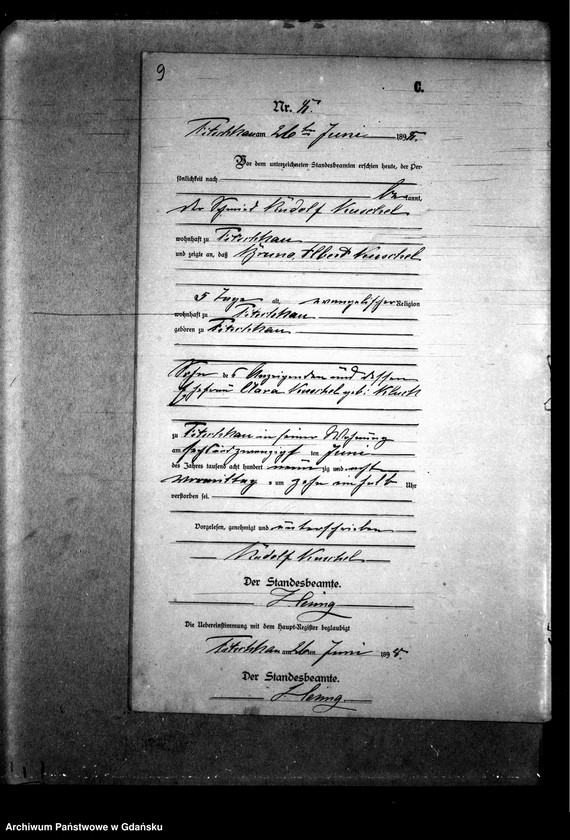 9
C.
Nr. 8.
am 26ten Juni 1898.
Vor dem unterzeichneten Standesbeamten erschien heute, der Per-
sönlichkeit nach
bekannt,
der Schmied Rudolf Kuschel
wohnhaft zu
und zeigte an, daß Bruno Albert Kuschel
5 Tage alt, evangelischer Religion
wohnhaft zu
geboren zu
Sohn des Anzeigenden und dessen
Ehefrau Clara Kuschel geb.
zu in seiner Wohnung
am sechsundzwanzigsten Juni
des Jahres tausend acht hundert neunzig und acht
Vormittags um zehn ein halb Uhr
verstorben sei.
Vorgelesen, genehmigt und unterschrieben
Rudolf Kuschel
Der Standesbeamte.
Die Uebereinstimmung mit dem Haupt-Register beglaubigt
am 26ten Juni 1898.
Der Standesbeamte.
Archiwum Państwowe w Gdańsku